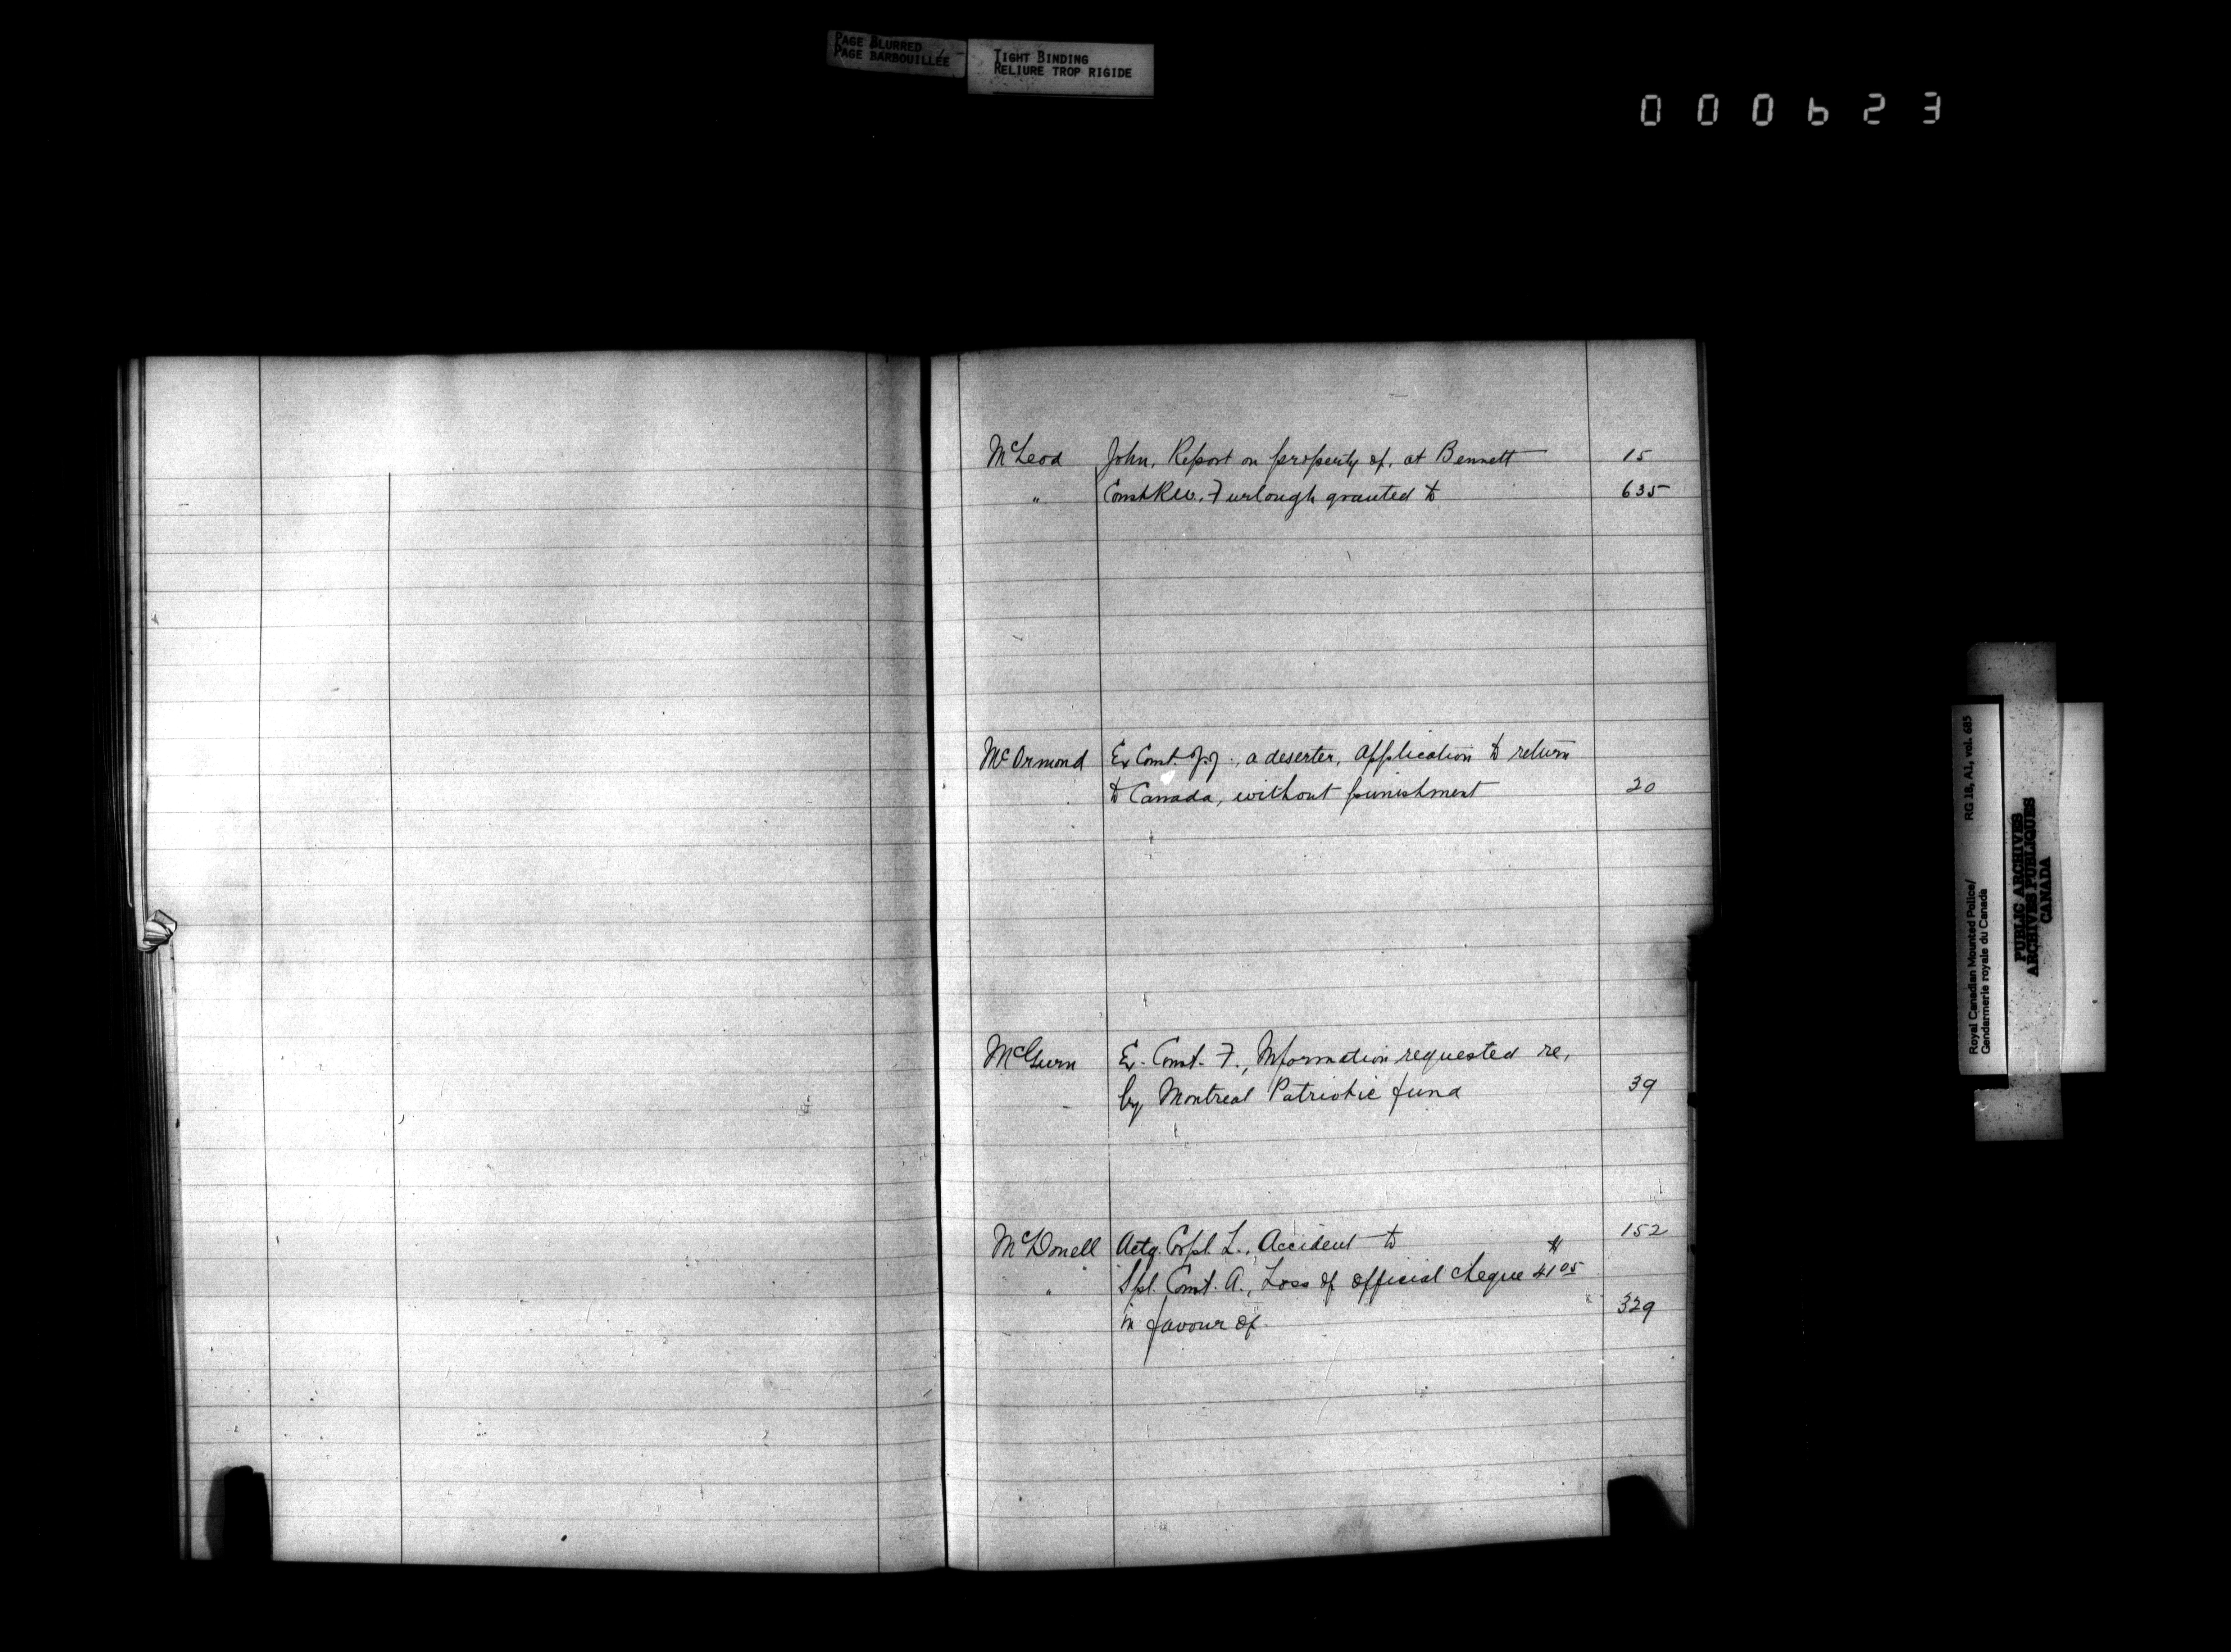 PAGE BLURRED
PAGE BARBOUILLÉE
TIGHT BINDING
RELIURE TROP RIGIDE
000623
McLeod John, Report on property of, at Bennett 15
" Const R.W., Furlough granted to 635
McOrmond Ex Const. J.J., a deserter, application to return
to Canada, without punishment 20
McGurn Ex. Const. F., Information requested re,
by Montreal Patriotic fund 39
McDonell Actg. Corpl. L., Accident to 152
" Spl. Const. A., Loss of official cheque 41 05
in favour of 329
Royal Canadian Mounted Police/ RG 18, A1, vol. 685
Gendarmerie royale du Canada
PUBLIC ARCHIVES
ARCHIVES PUBLIQUES
CANADA